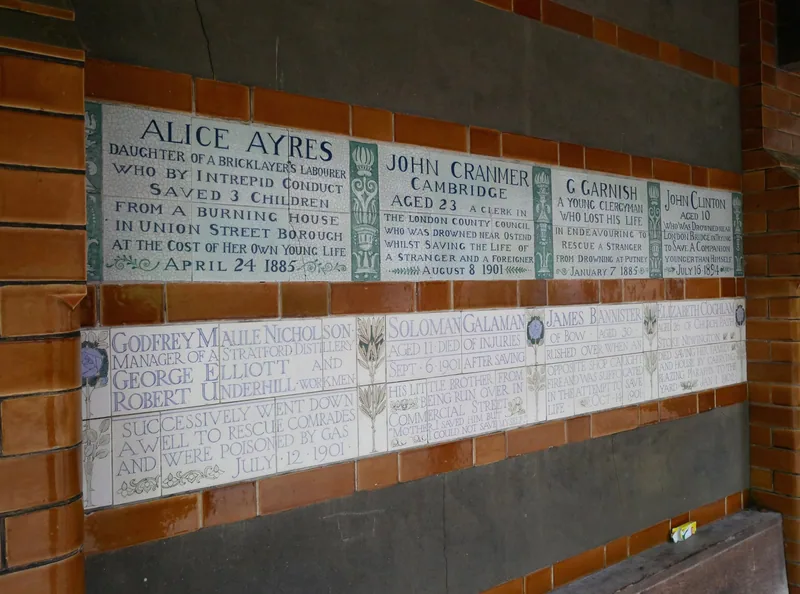 ALICE AYRES
DAUGHTER OF A BRICKLAYER'S LABOURER
WHO BY INTREPID CONDUCT
SAVED 3 CHILDREN
FROM A BURNING HOUSE
IN UNION STREET BOROUGH
AT THE COST OF HER OWN YOUNG LIFE
APRIL 24 1885
JOHN CRANMER
CAMBRIDGE
AGED 23 A CLERK IN
THE LONDON COUNTY COUNCIL
WHO WAS DROWNED NEAR OSTEND
WHILST SAVING THE LIFE OF
A STRANGER AND A FOREIGNER
AUGUST 8 1901
G GARNISH
A YOUNG CLERGYMAN
WHO LOST HIS LIFE
IN ENDEAVOURING TO
RESCUE A STRANGER
FROM DROWNING AT PUTNEY
JANUARY 7 1885
JOHN CLINTON
AGED 10
WHO WAS DROWNED NEAR
LONDON BRIDGE IN TRYING
TO SAVE A COMPANION
YOUNGER THAN HIMSELF
JULY 16 1894
GODFREY MAULE NICHOLSON
MANAGER OF A STRATFORD DISTILLERY
GEORGE ELLIOTT AND
ROBERT UNDERHILL WORKMEN
SUCCESSIVELY WENT DOWN
A WELL TO RESCUE COMRADES
AND WERE POISONED BY GAS
JULY 12 1901
SOLOMAN GALAMAN
AGED 11 DIED OF INJURIES
SEPT 6 1901 AFTER SAVING
HIS LITTLE BROTHER FROM
BEING RUN OVER IN
COMMERCIAL STREET
MOTHER I SAVED HIM BUT I
COULD NOT SAVE MYSELF
JAMES BANNISTER
OF BOW AGED 30
RUSHED OVER WHEN AN
OPPOSITE SHOP CAUGHT
FIRE AND WAS SUFFOCATED
IN THE ATTEMPT TO SAVE
LIFE OCT 14 1901
ELIZABETH COGHLAM
AGED 26 OF CHURCH PATH